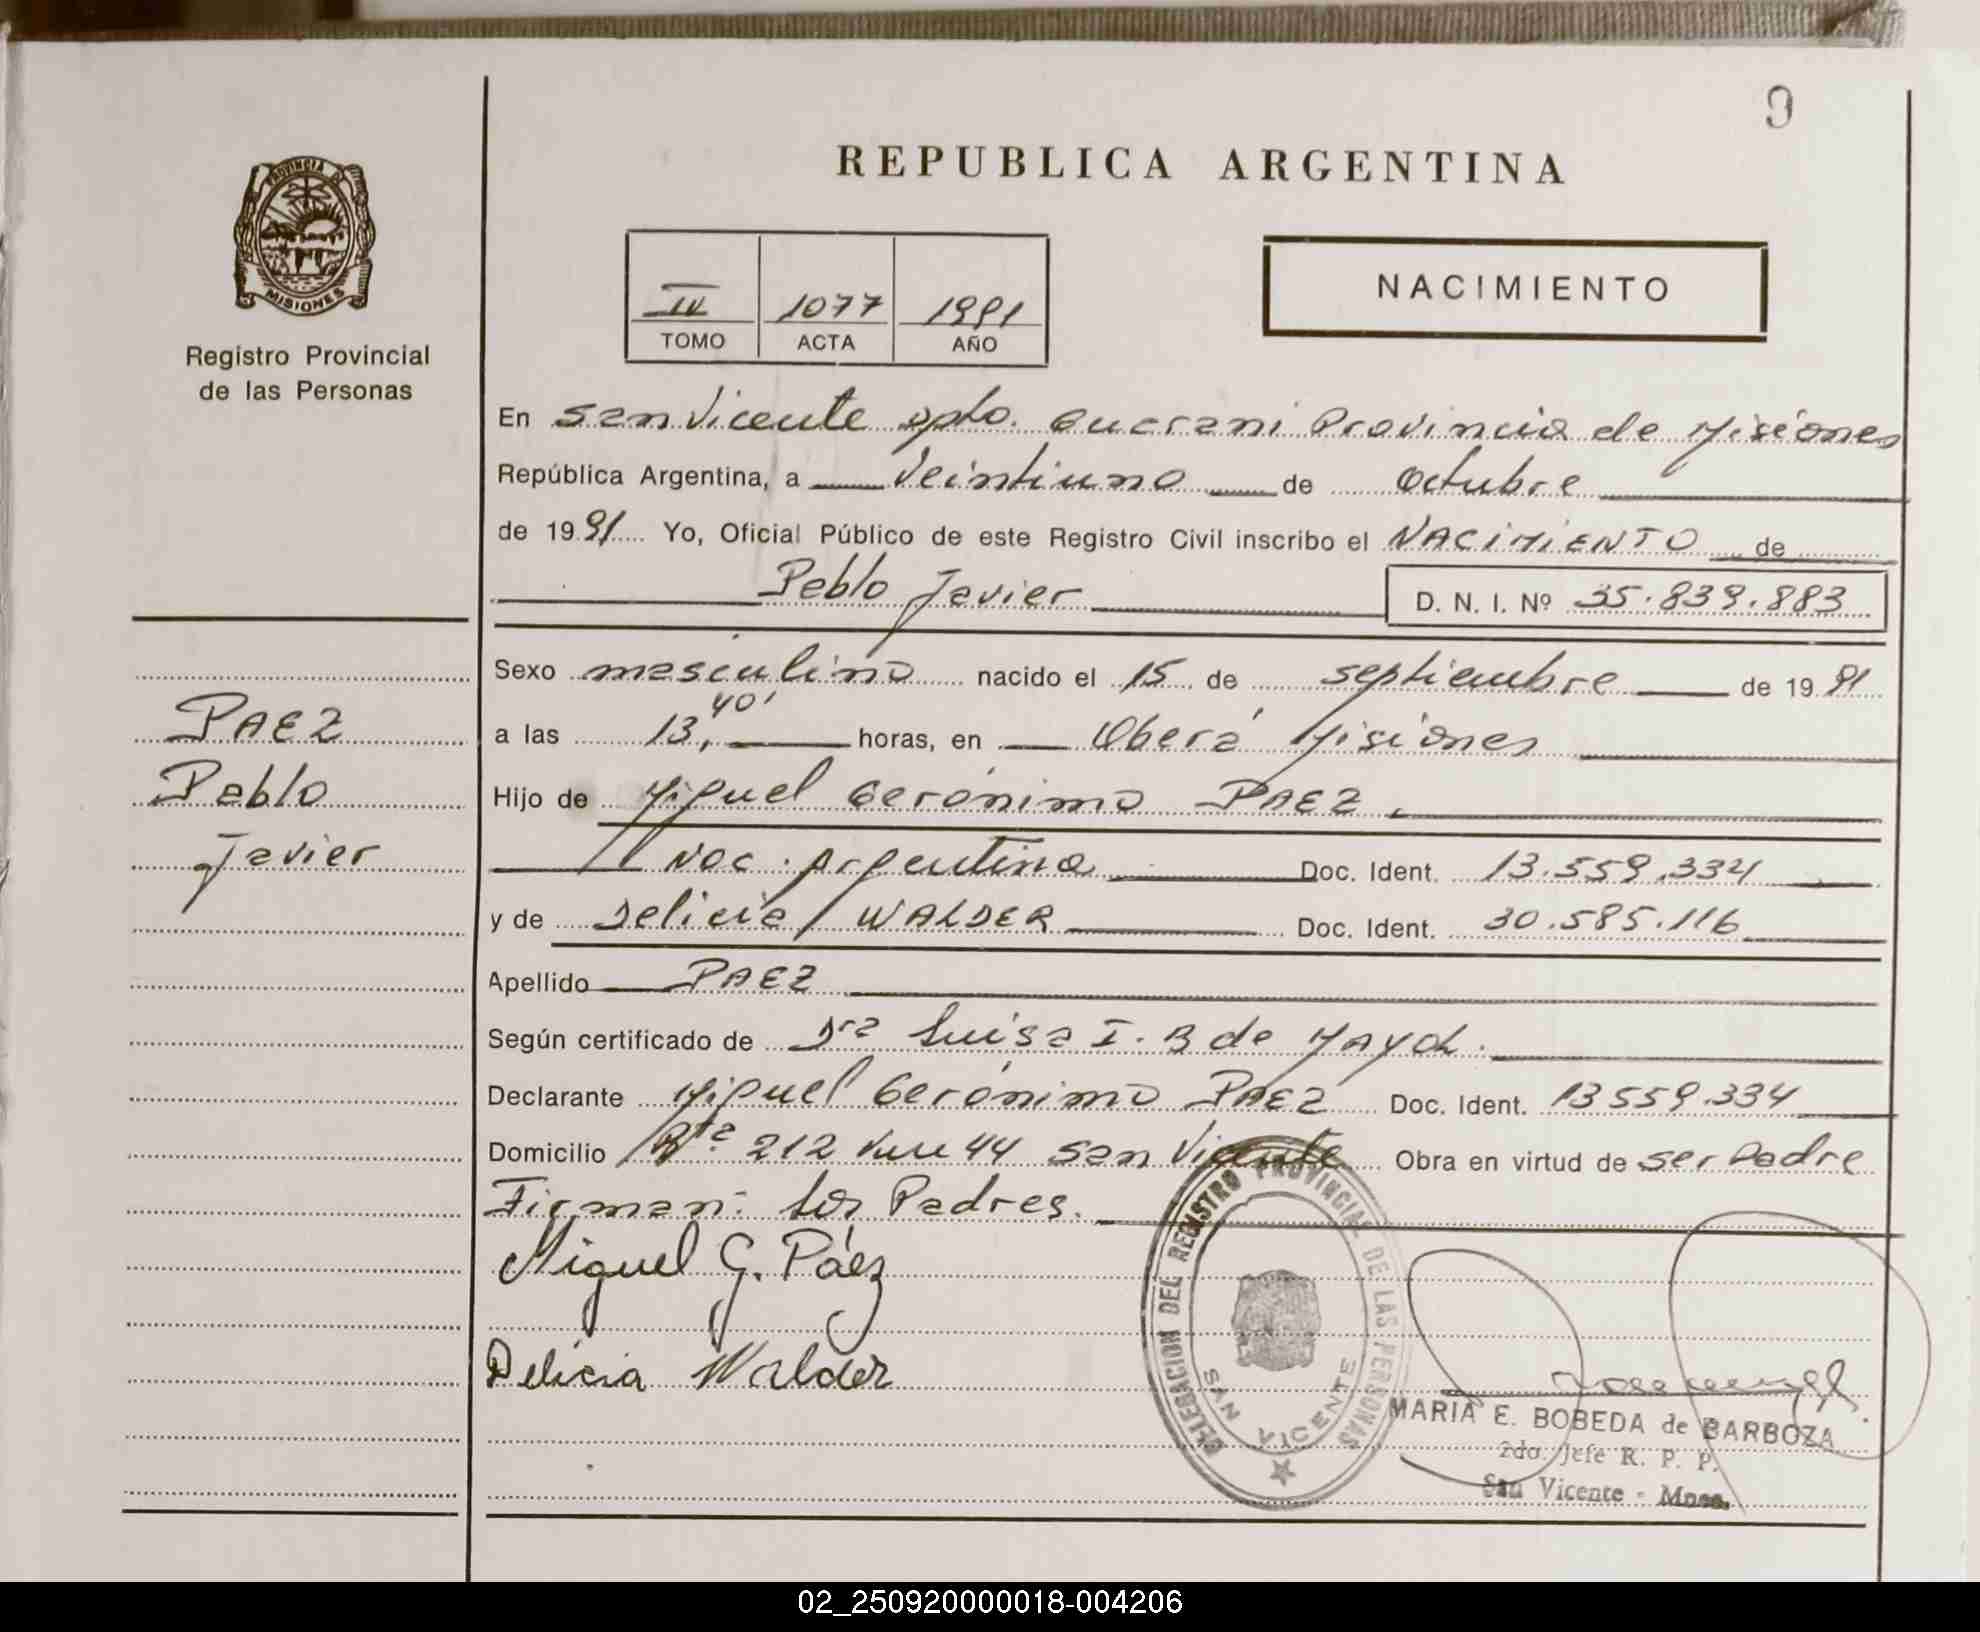 9
REPUBLICA ARGENTINA
PROVINCIA D
MISIONES
Registro Provincial
de las Personas
IV 1077 1991
TOMO ACTA AÑO
NACIMIENTO
En San Vicente Dpto. Guarani Provincia de Misiones
República Argentina, a Veintiuno de Octubre
de 1991 Yo, Oficial Público de este Registro Civil inscribo el NACIMIENTO de
Pablo Javier D. N. I. Nº 35.839.883
Sexo masculino nacido el 15 de septiembre de 1991
a las 13,40' horas, en Oberá Misiones
Hijo de Miguel Gerónimo PAEZ.
Nac. Argentina Doc. Ident. 13.559.334
y de Delicia WALDER Doc. Ident. 30.585.116
Apellido PAEZ
Según certificado de Dra Luisa I. B de MAYOL.
Declarante Miguel Gerónimo PAEZ Doc. Ident. 13559.334
Domicilio Rta 212 44 San Vicente Obra en virtud de ser Padre
Firman: los Padres.
Miguel G. Páez
Delicia Walder
PAEZ
Pablo
Javier
DELEGACION DEL REGISTRO PROVINCIAL DE LAS PERSONAS
SAN VICENTE
MARIA E. BOBEDA de BARBOZA
2do. Jefe R. P. P.
San Vicente - Mnes.
02_250920000018-004206